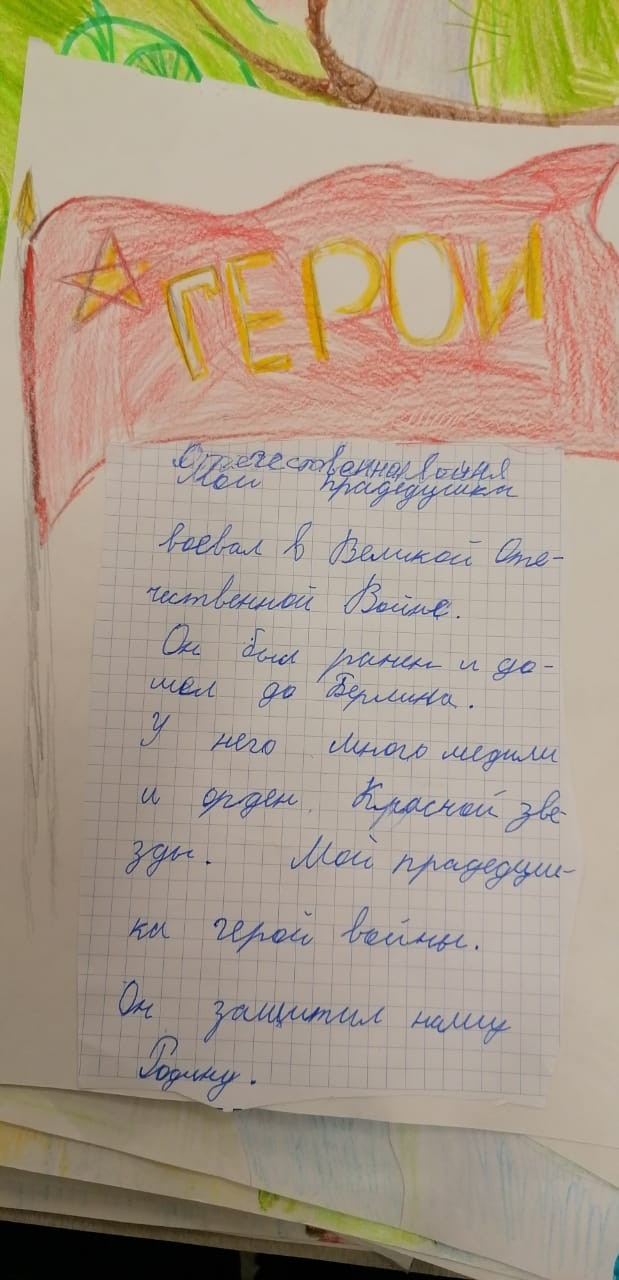 ГЕРОИ
Отечественная война
Мой прадедушка
воевал в Великой Оте-
чественной Войне.
Он был ранен и до-
шел до Берлина.
У него много медили
и орден Красной зве-
зды. Мой прадедуш-
ка герой войны.
Он защитил нашу
Родину.